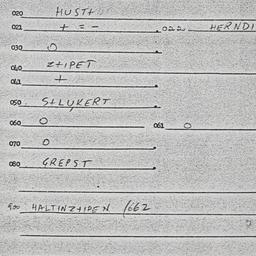 020 HUSTT
021 + = - 022 HERNDI
030 O
040 Z+IPET
041 +
050 S+LUKERT
060 O 061 O
070 O
080 GREPST
900 HALTINZ+IPEN /662